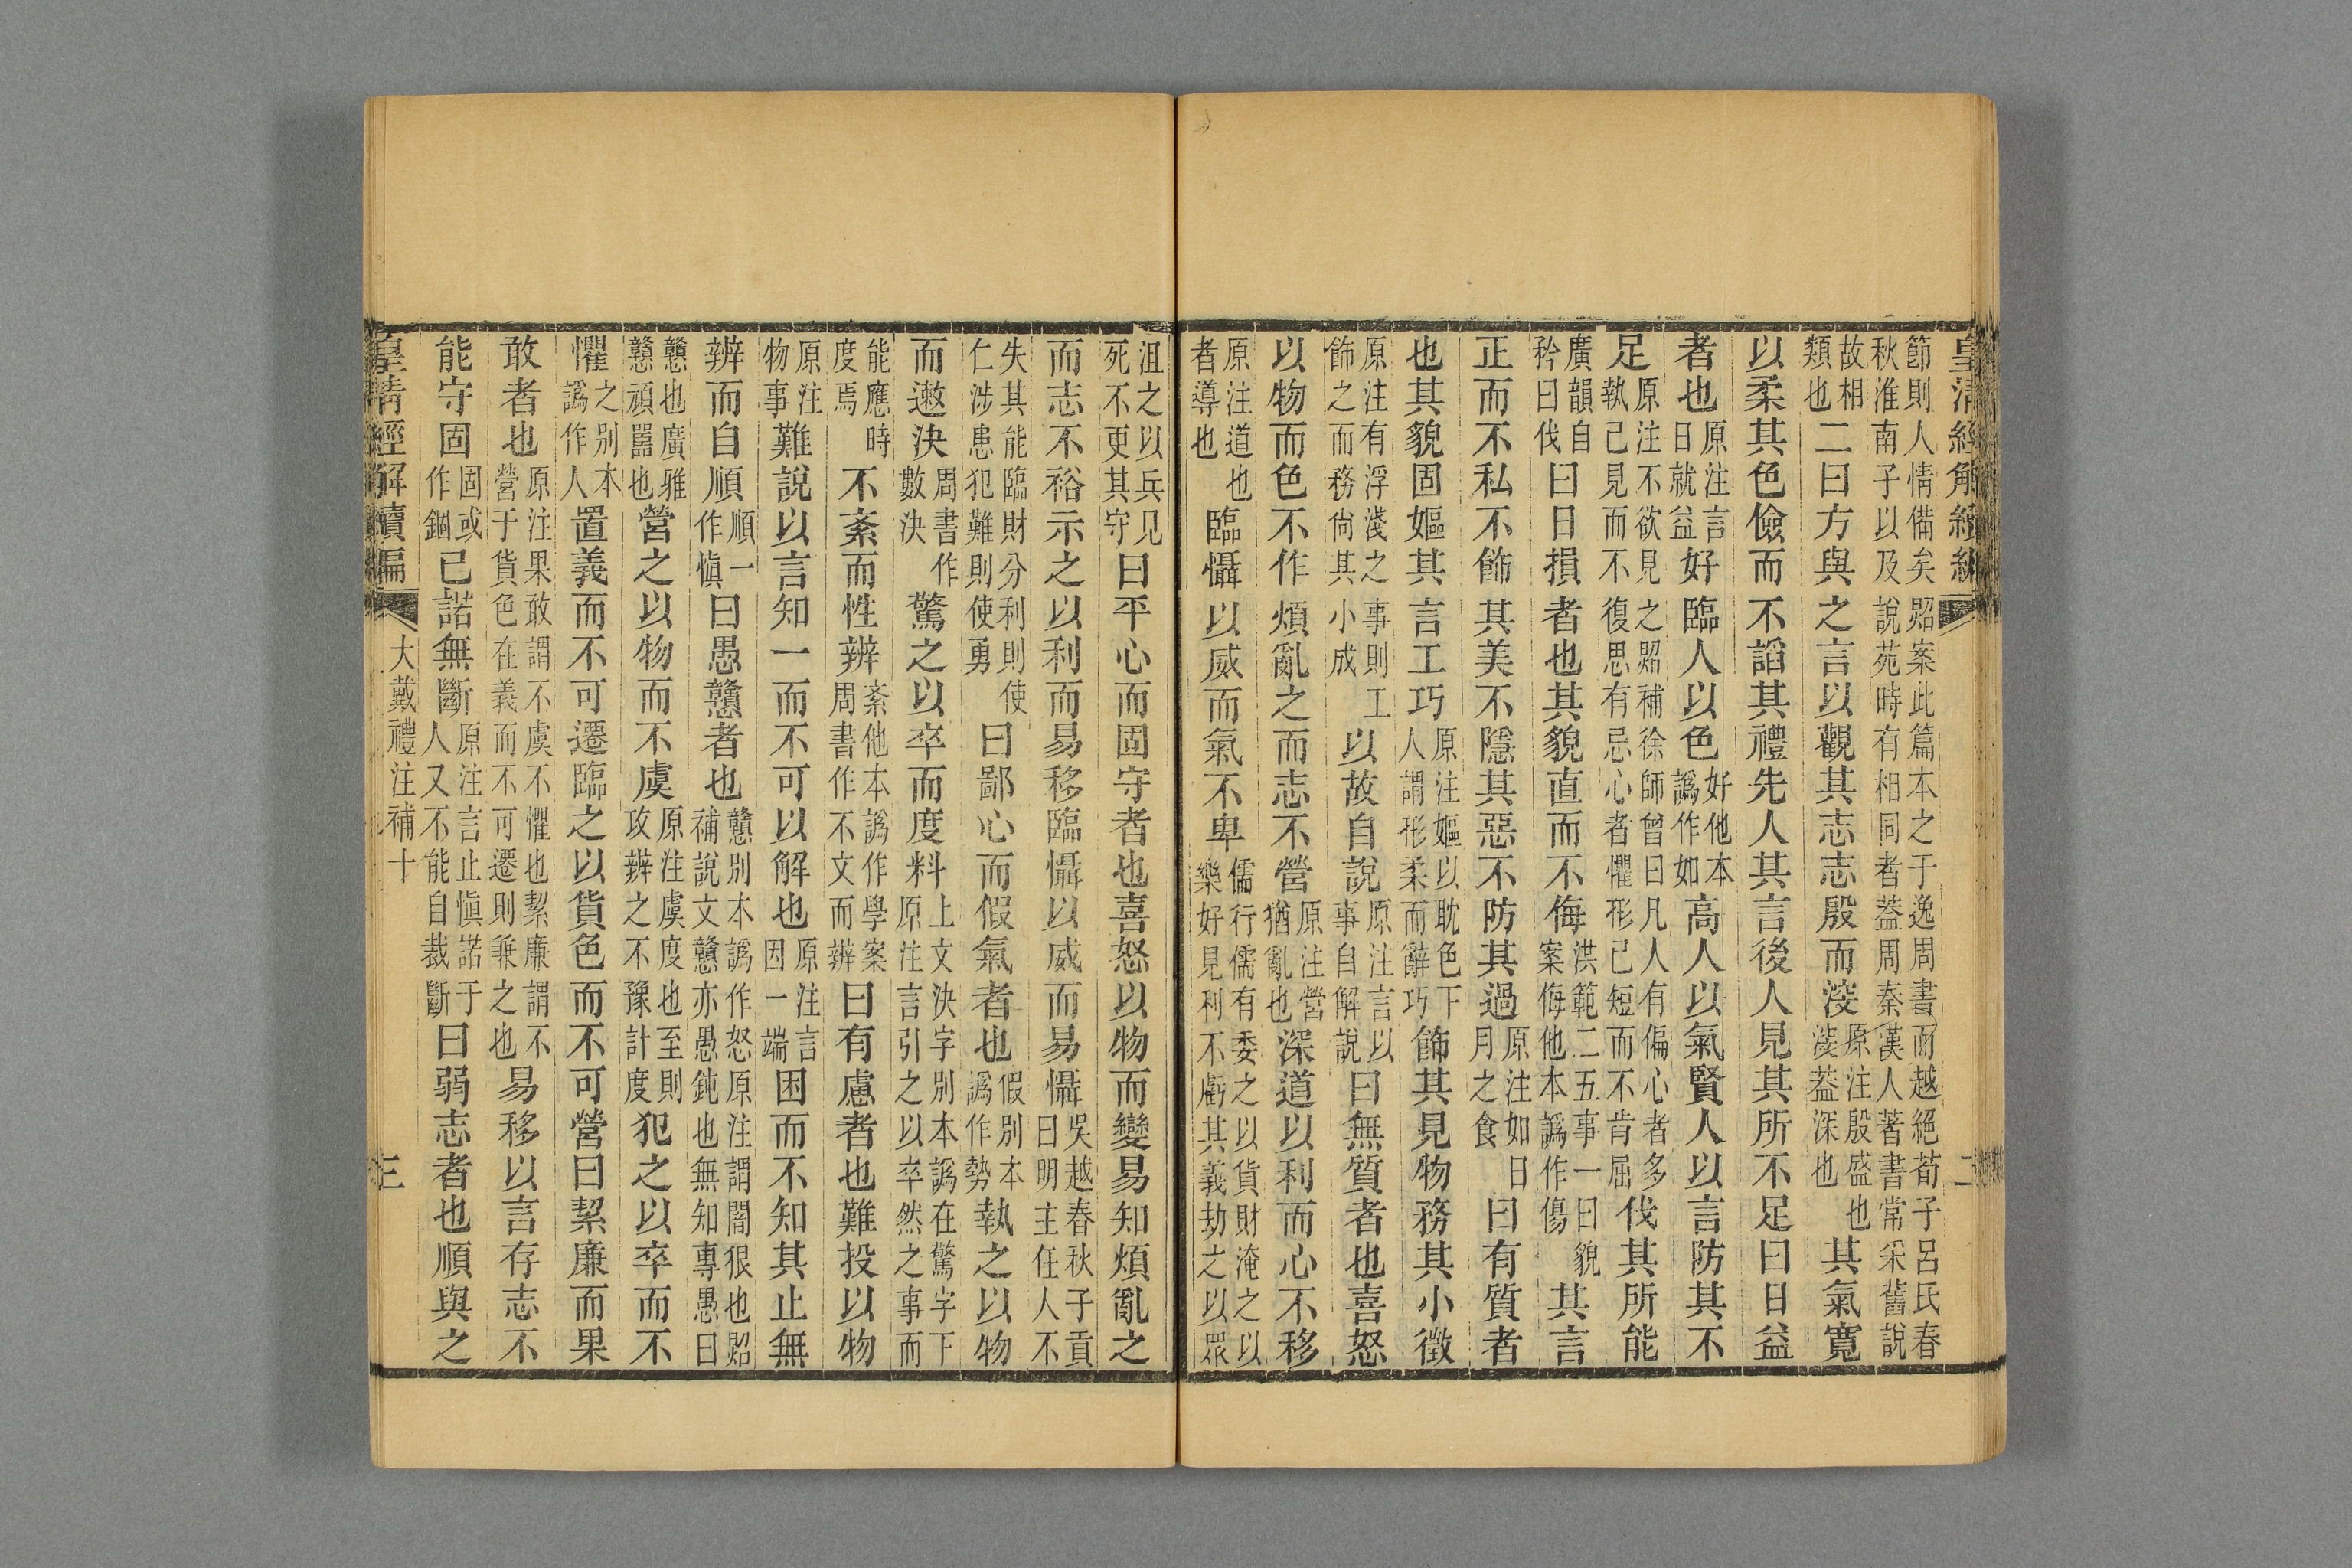 皇清經解續編
二
節則人情備矣〈照案此篇本之于逸周書而越絕荀子呂氏春
秋淮南子以及說苑時有相同者葢周秦漢人著書常采舊說
故相類也〉二曰方與之言以觀其志志殷而㴱〈原注殷盛也㴱葢深也〉其氣寬
以柔其色儉而不謟其禮先人其言後人見其所不足曰日益
者也〈原注言日就益〉好臨人以色〈好他本譌作如〉高人以氣賢人以言防其不
足〈原注不欲見之照補徐師曾曰凡人有偏心者多執己見而不復思有忌心者懼形已短而不肯屈〉伐其所能
〈廣韻自矜曰伐〉曰日損者也其貌直而不侮〈洪範二五事一曰貌案侮他本譌作傷〉其言
正而不私不飾其美不隱其惡不防其過〈原注如日月之食〉曰有質者
也其貌固嫗其言工巧〈原注嫗以耽色下人謂形柔而辭巧〉飾其見物務其小徵
〈原注有浮淺之事則工飾之而務尙其小成〉以故自說〈原注言以事自解說〉曰無質者也喜怒
以物而色不作煩亂之而志不營〈原注營猶亂也〉深道以利而心不移
〈原注道也者導也〉臨懾以威而氣不卑〈儒行儒有委之以貨財淹之以樂好見利不虧其義劫之以眾
沮之以兵见死不更其守〉曰平心而固守者也喜怒以物而變易知煩亂之
而志不裕示之以利而易移臨懾以威而易懾〈吳越春秋子貢曰明主任人不
失其能臨財分利則使仁涉患犯難則使勇〉曰鄙心而假氣者也〈假別本譌作勢〉執之以物
而遬決〈周書作數決〉驚之以卒而度料〈上文決字別本譌在驚字下原注言引之以卒然之事而
能應時度焉〉不紊而性辨〈紊他本譌作學案周書作不文而辨〉曰有慮者也難投以物
〈原注物事〉難說以言知一而不可以解也〈原注言因一端〉困而不知其止無
辨而自順〈順一作愼〉曰愚戇者也〈戇別本譌作怒原注謂闇很也照補說文戇亦愚鈍也無知專愚曰
戇也廣雅戇頑嚚也〉營之以物而不虞〈原注虞度也至則攻辨之不豫計度〉犯之以卒而不
懼〈之別本譌作人〉置義而不可遷臨之以貨色而不可營曰絜廉而果
敢者也〈原注果敢謂不虞不懼也絜廉謂不營于貨色在義而不可遷則兼之也〉易移以言存志不
能守固〈固或作錮〉已諾無斷〈原注言止愼諾于人又不能自裁斷〉曰弱志者也順與之
皇清經解續編
大戴禮注補十
三